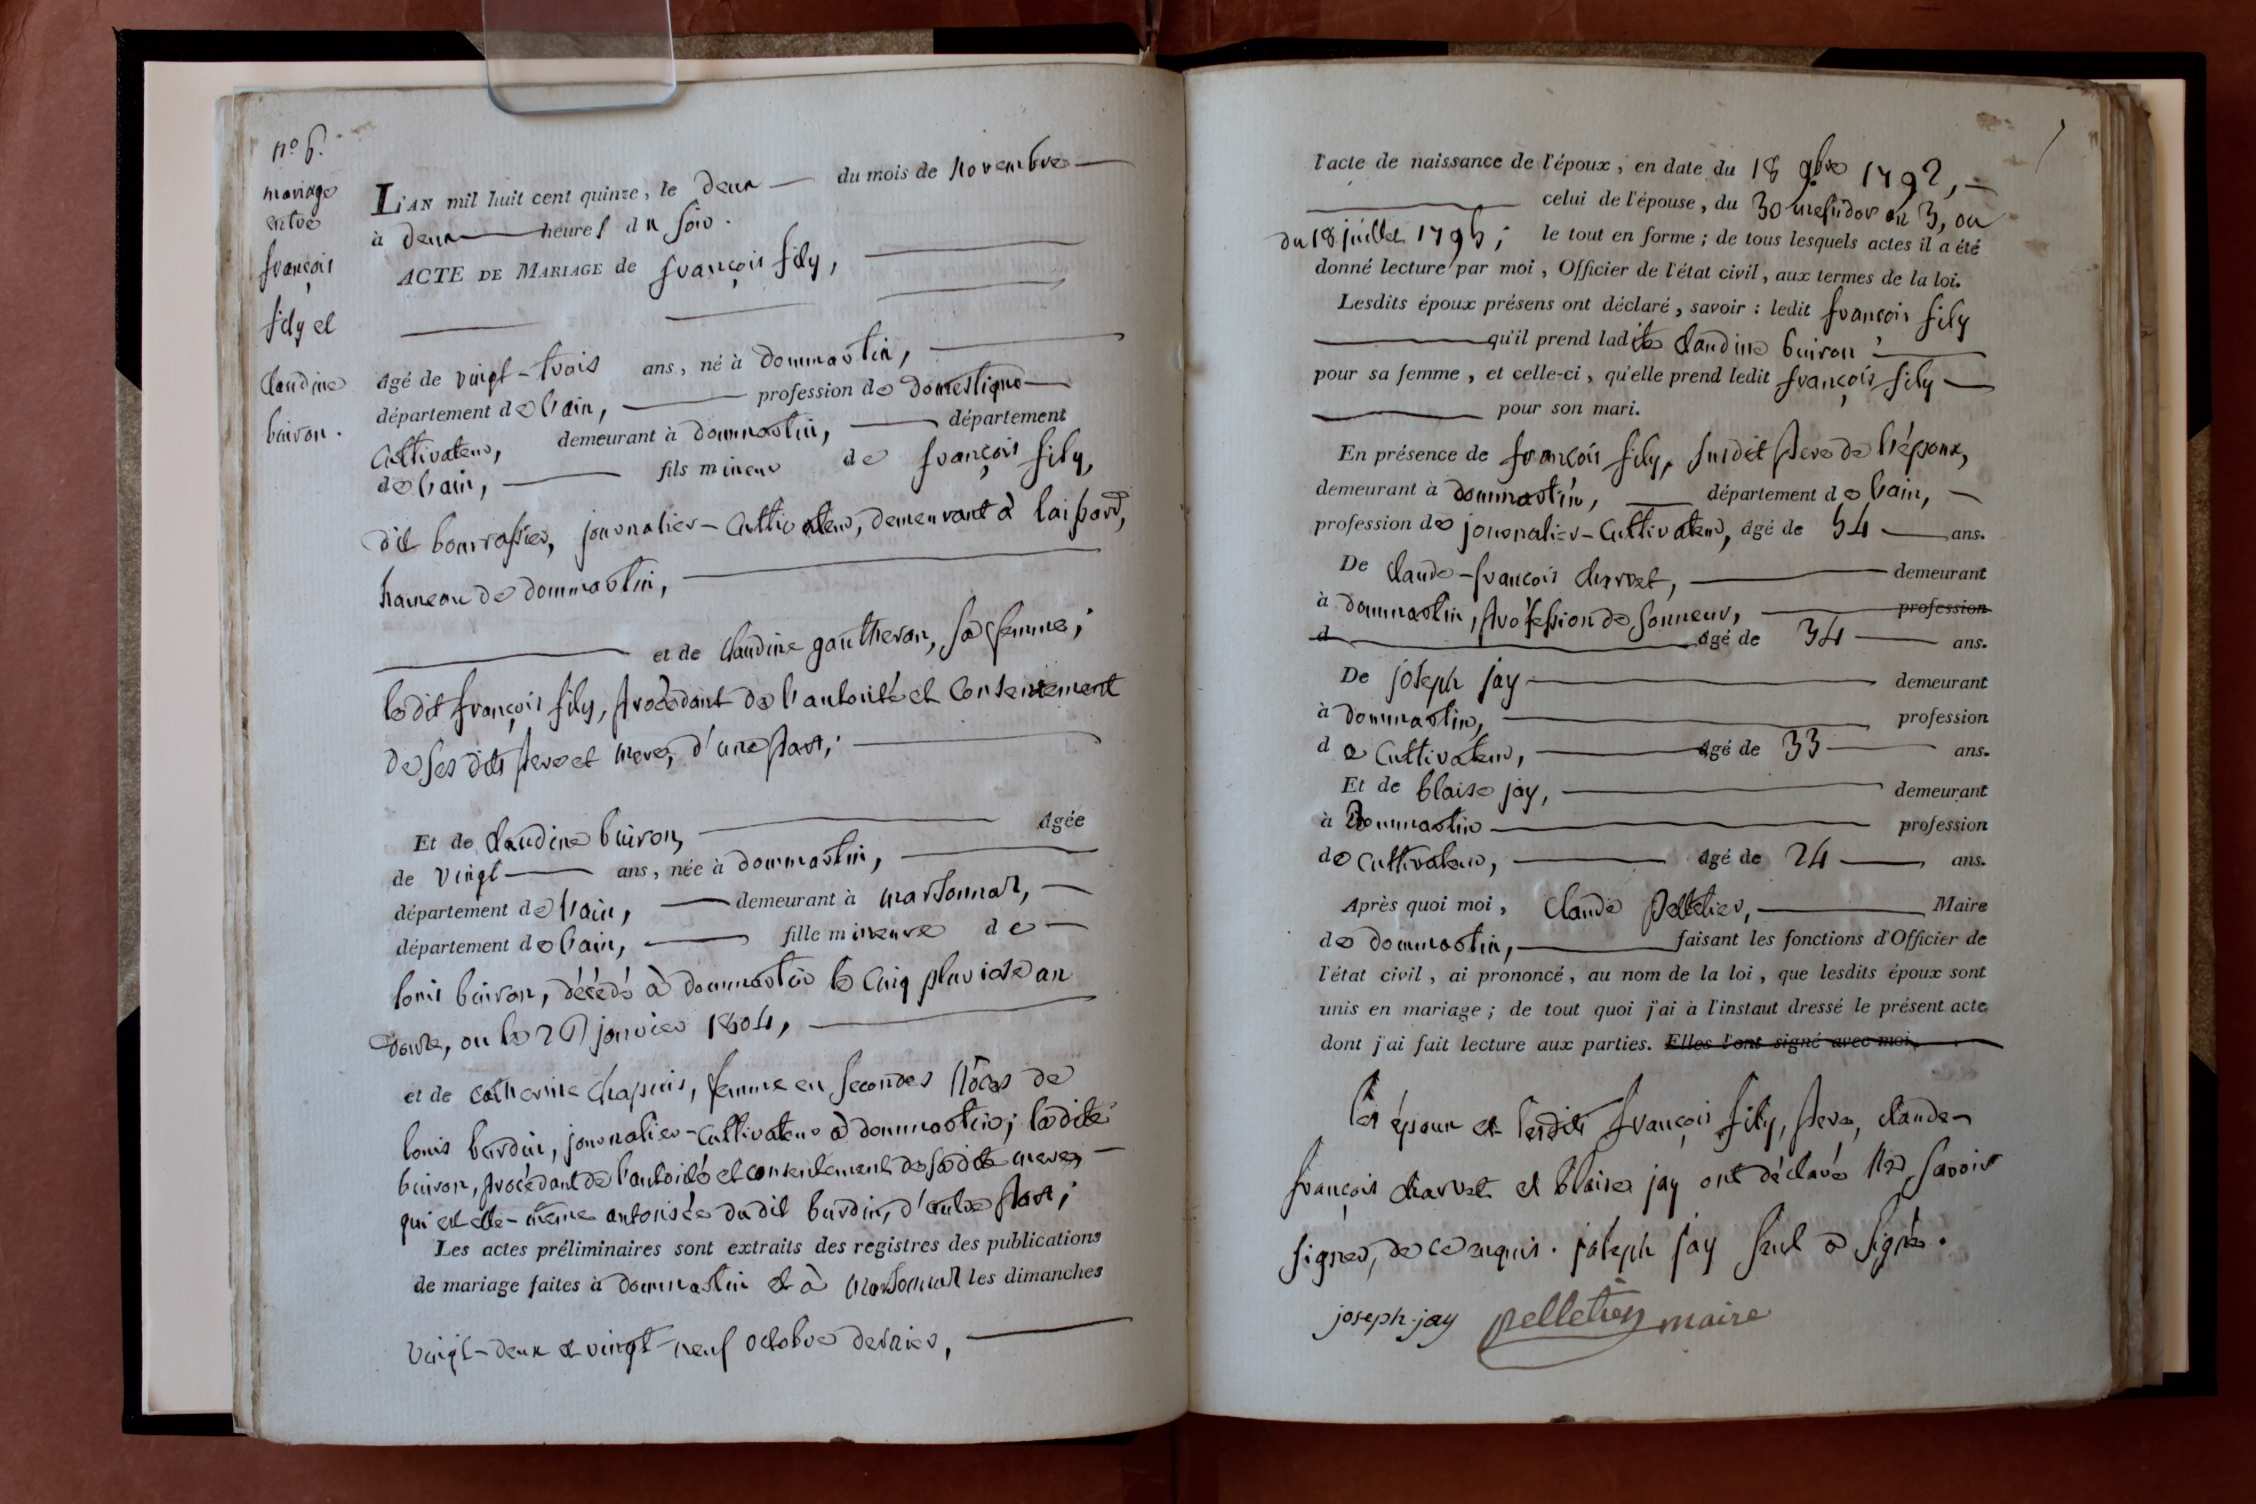 n.º 6.
mariage
entre
françois
fily et
claudine
buiron.
L'AN mil huit cent quinze, le deux du mois de novembre
à deux heures du soir.
ACTE DE MARIAGE de françois fily,
âgé de vingt-trois ans, né à dommartin,
département de l'ain, profession de domestique
Cultivateur, demeurant à dommartin, département
de l'ain, fils mineur de françois fily,
dit bourrassier, journalier-Cultivateur, demeurant à
hameau de dommartin,
et de claudine gautheron, sa femme;
ledit françois fily, procèdant de l'autorité et Consentement
de ses dits pere et mere, d'une part;
Et de claudine buiron, âgée
de vingt ans, née à dommartin,
département de l'ain, demeurant à marsonnas,
département de l'ain, fille mineure de
louis buiron, décédé à dommartin le cinq pluviose an
douze, ou le 26 janvier 1804,
et de catherine chapuis, femme en secondes nôces de
louis burdin, journalier-Cultivateur à dommartin; ladite
buiron, procédant de l'autorité et consentement de sadite mere,
qui est elle-même autorisée dudit burdin, d'autre part;
Les actes préliminaires sont extraits des registres des publications
de mariage faites à dommartin et à marsonnas les dimanches
vingt-deux et vingt-neuf octobre dernier,
l'acte de naissance de l'époux, en date du 18 9bre 1792,
celui de l'épouse, du 30 messidor an 3, ou
du 18 juillet 1795; le tout en forme; de tous lesquels actes il a été
donné lecture par moi, Officier de l'état civil, aux termes de la loi.
Lesdits époux présens ont déclaré, savoir: ledit françois fily
qu'il prend ladite claudine buiron
pour sa femme, et celle-ci, qu'elle prend ledit françois fily
pour son mari.
En présence de françois fily, susdit pere de l'époux,
demeurant à dommartin, département de l'ain,
profession de journalier-Cultivateur, âgé de 54 ans.
De claude-françois charvet, demeurant
à dommartin, profession de sonneur, profession
d âgé de 34 ans.
De joseph jay demeurant
à dommartin, profession
de Cultivateur, âgé de 33 ans.
Et de blaise jay, demeurant
à Dommartin profession
de cultivateur, âgé de 24 ans.
Après quoi moi, Claude pelletier, Maire
de dommartin, faisant les fonctions d'Officier de
l'état civil, ai prononcé, au nom de la loi, que lesdits époux sont
unis en mariage; de tout quoi j'ai à l'instaut dressé le présent acte
dont j'ai fait lecture aux parties. Elles l'ont signé avec moi.
les époux et lesdits françois fily, pere, claude-
françois charvet et blaise jay ont déclaré ne savoir
signer, de ce enquis. joseph jay seul a signé.
joseph-jay pelletier maire